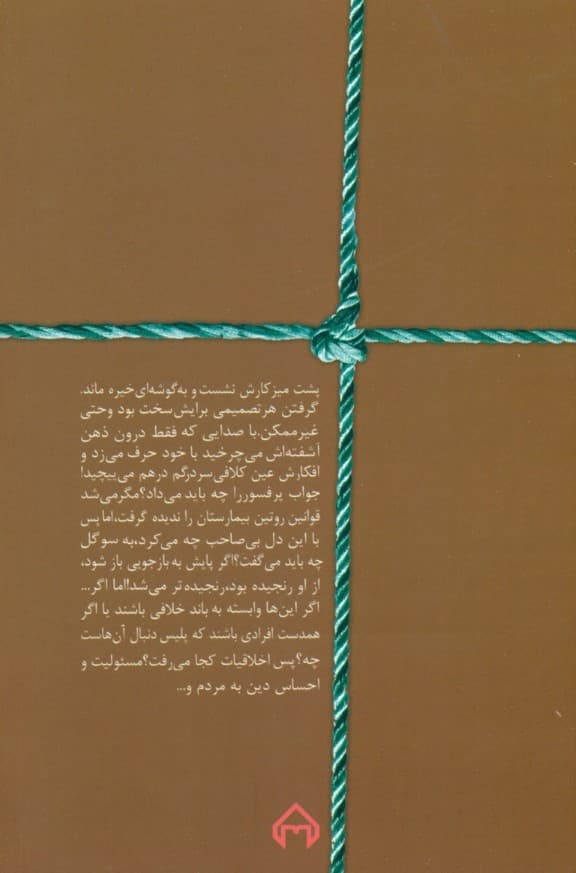 پشت میز کارش نشست و به‌گوشه‌ای خیره ماند.
گرفتن هر تصمیمی برایش سخت بود وحتی
غیرممکن.با صدایی که فقط درون ذهن
آشفته‌اش می‌چرخید با خود حرف می‌زد و
افکارش عین کلافی سردرگم درهم می‌پیچید!
جواب پرفسوررا چه باید می‌داد؟مگرمی‌شد
قوانین روتین بیمارستان را ندیده گرفت،اما پس
با این دل بی‌صاحب چه می‌کرد،به سوگل
چه باید می‌گفت؟اگر پایش به بازجویی باز شود،
از او رنجیده بود،رنجیده‌تر می‌شد!اما اگر...
اگر این‌ها وابسته به باند خلافی باشند یا اگر
همدست افرادی باشند که پلیس دنبال آن‌هاست
چه؟پس اخلاقیات کجا می‌رفت؟مسئولیت و
احساس دین به مردم و...